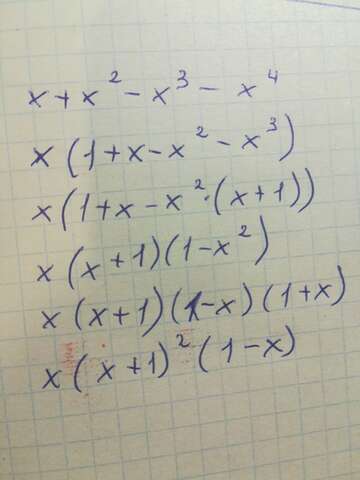 x + x² - x³ - x⁴
x (1 + x - x² - x³)
x (1 + x - x² · (x + 1))
x (x + 1) (1 - x²)
x (x + 1) (1 - x) (1 + x)
x (x + 1)² (1 - x)